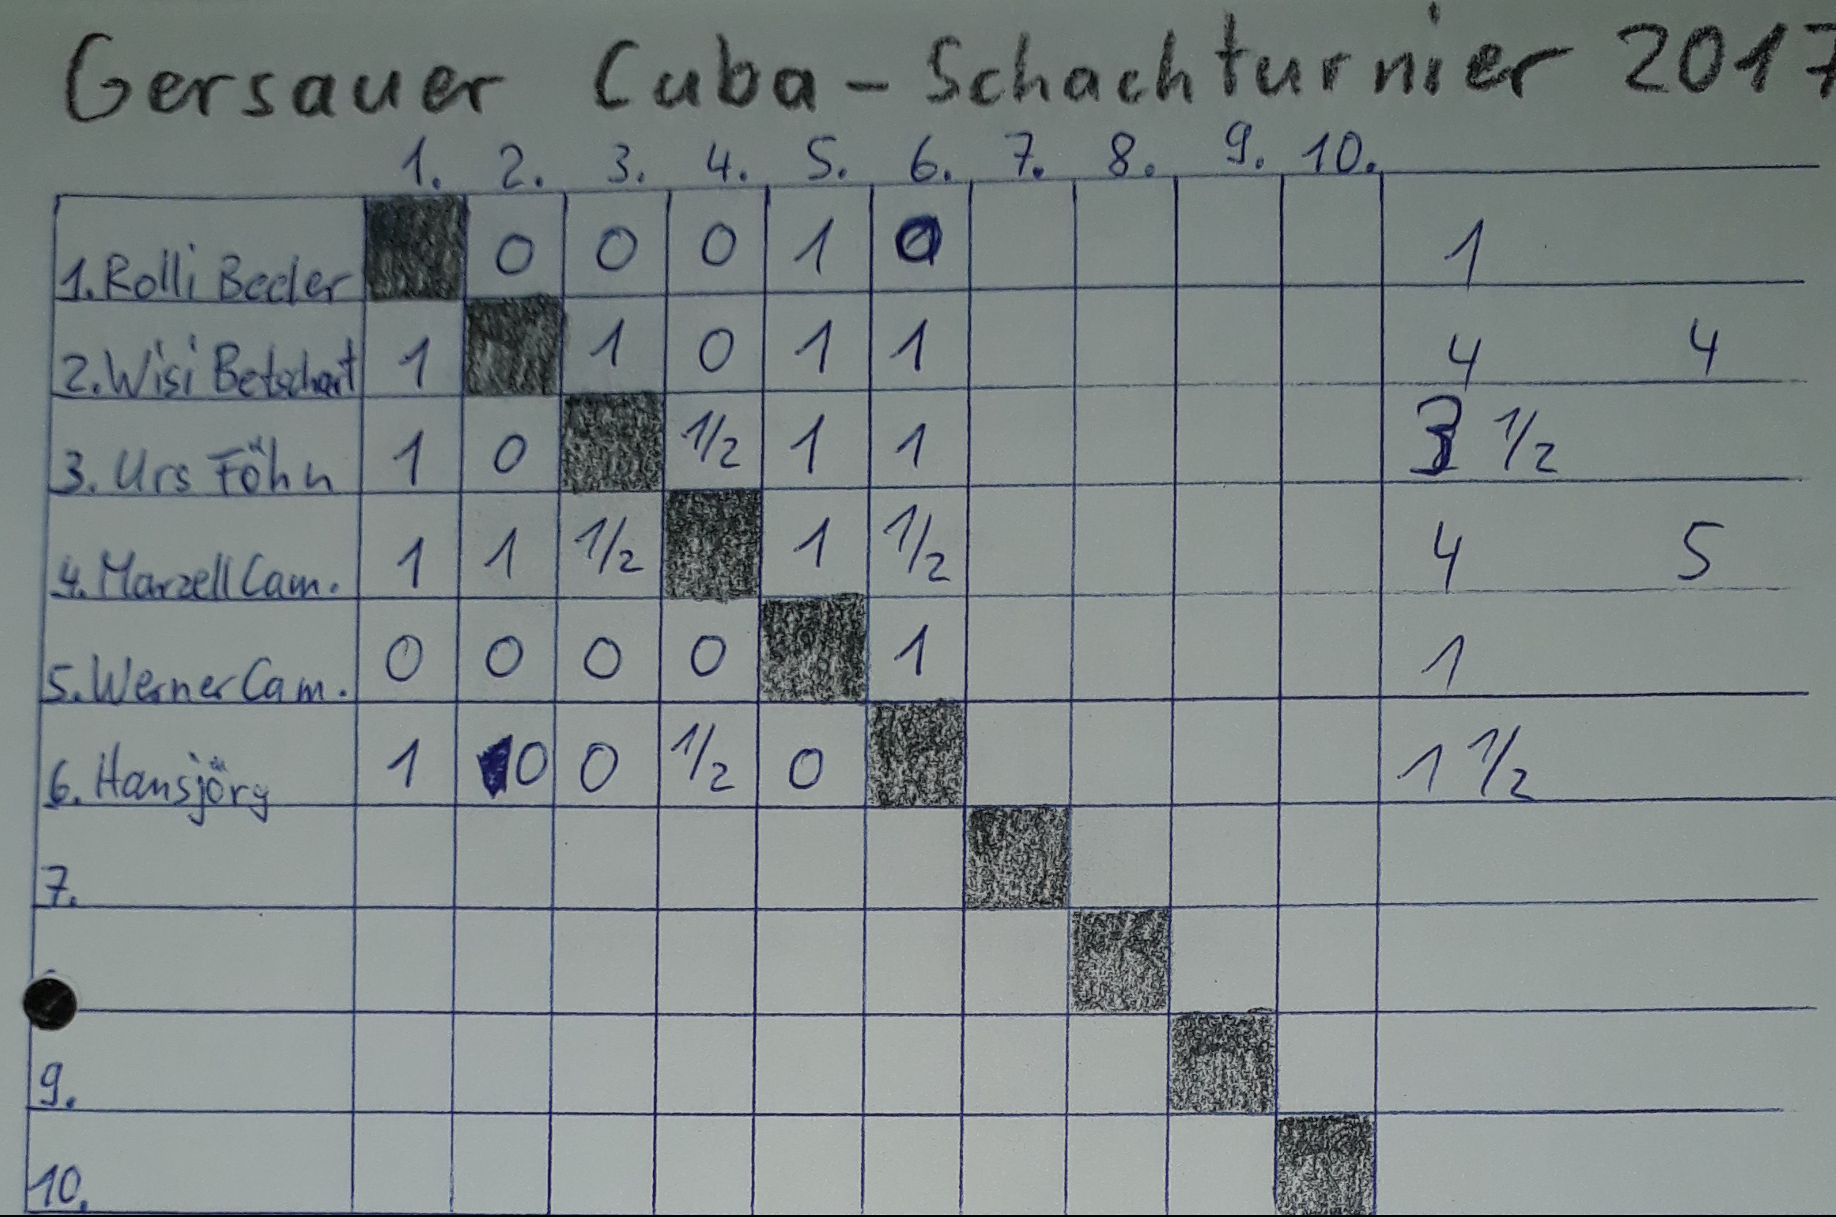 Gersauer Cuba - Schachturnier 2017
1. 2. 3. 4. 5. 6. 7. 8. 9. 10.
1. Rolli Beeler 0 0 0 1 0 1
2. Wisi Betschart 1 1 0 1 1 4 4
3. Urs Föhn 1 0 1/2 1 1 3 1/2
4. Marzell Cam. 1 1 1/2 1 1/2 4 5
5. Werner Cam. 0 0 0 0 1 1
6. Hansjörg 1 0 0 1/2 0 1 1/2
7.
9.
10.